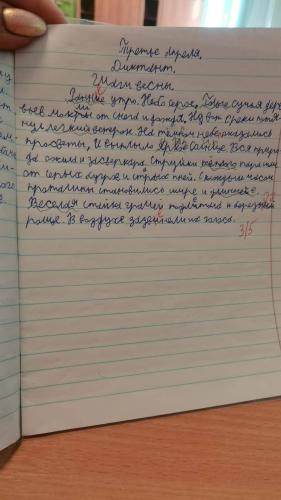 Третье апреля.
Диктант.
Шаги весны
утро. Небо серое. сучья дере
вьев мокры от снега и дождя. Но вот среки потя
нул легкий ветерок. На тёмном небе показались
просветы. И выплыло солнце. Вся природа
да ожила и засверкала. Струйки пошли
от серых бугров и старых пней. С каждым часом
проталины становились шире и длиннее.
Веселая стайка грачей полетела к березовой
роще. В воздухе зазвенели их голоса.
3/5